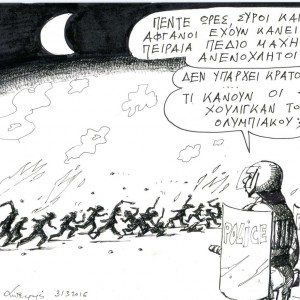 ΠΕΝΤΕ ΩΡΕΣ, ΣΥΡΟΙ ΚΑΙ
ΑΦΓΑΝΟΙ ΕΧΟΥΝ ΚΑΝΕΙ
ΠΕΙΡΑΙΑ ΠΕΔΙΟ ΜΑΧΗ
ΑΝΕΝΟΧΛΗΤΟΙ
ΔΕΝ ΥΠΑΡΧΕΙ ΚΡΑΤΟ
ΤΙ ΚΑΝΟΥΝ ΟΙ
ΧΟΥΛΙΓΚΑΝ ΤΟ
ΟΛΥΜΠΙΑΚΟΥ;
POLICE
3132016